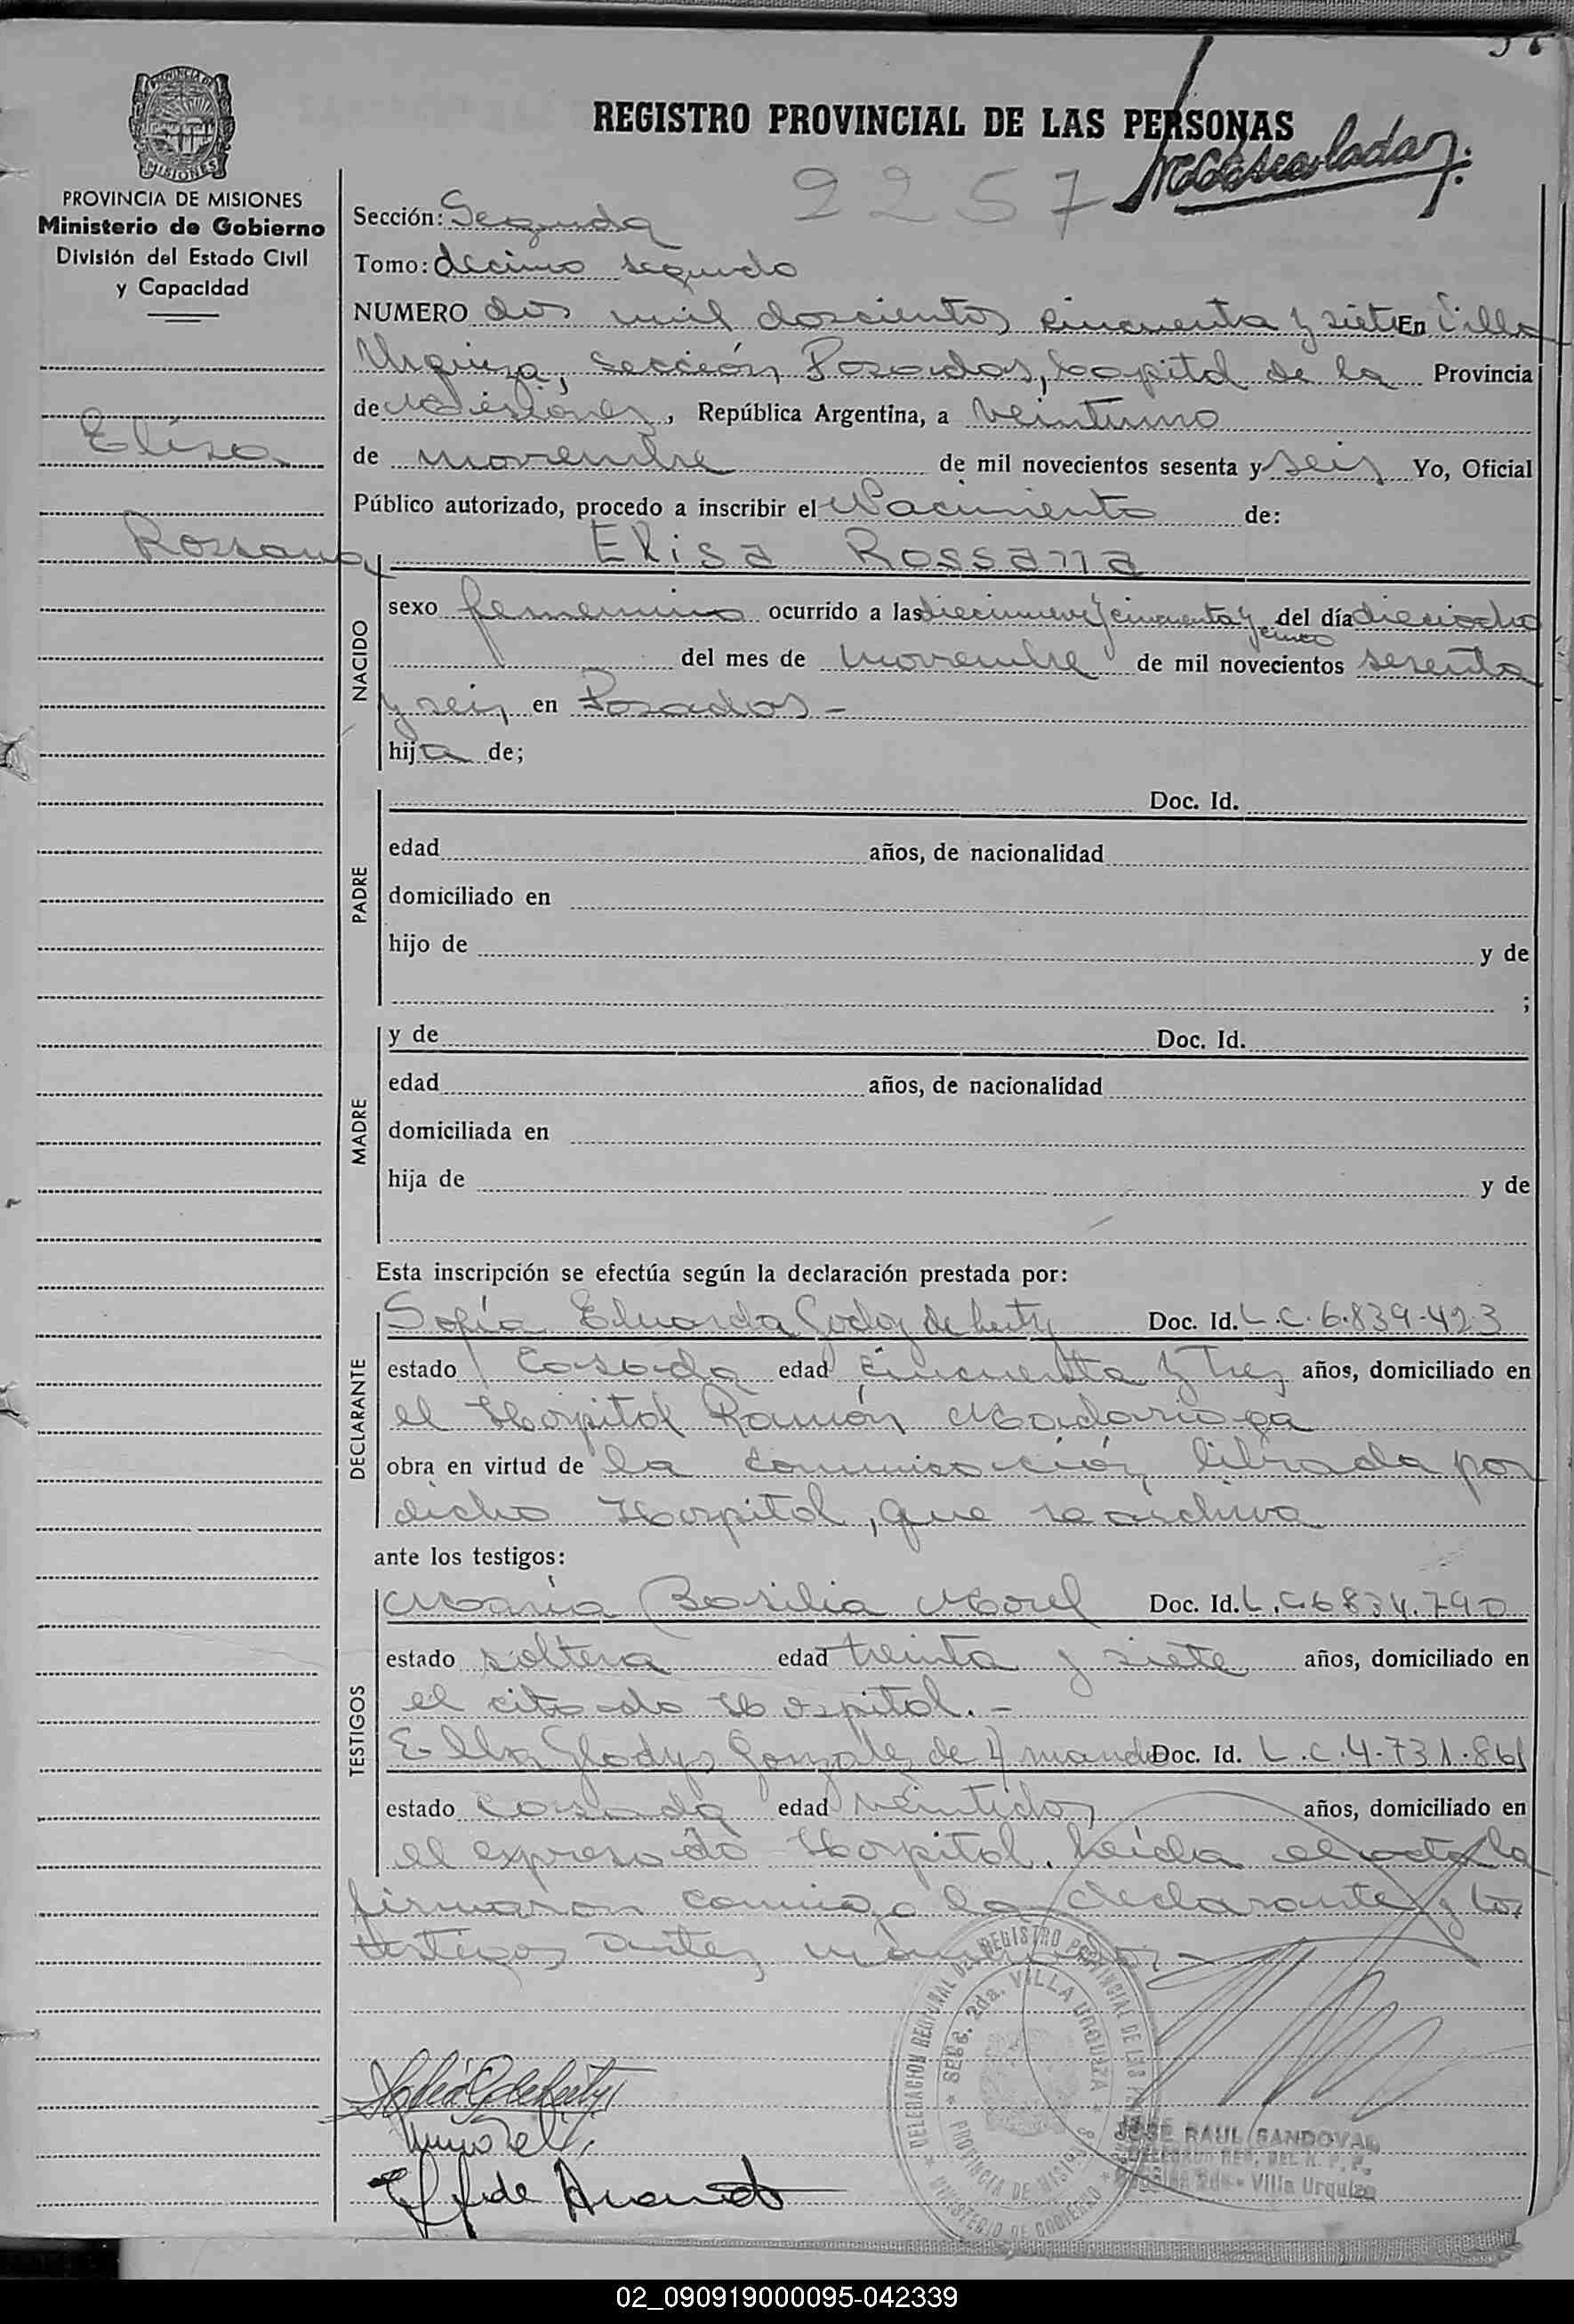 REGISTRO PROVINCIAL DE LAS PERSONAS
PROVINCIA DE MISIONES
Ministerio de Gobierno
División del Estado Civil
y Capacidad
Elisa
Rossana
2257
Sección: Segunda
Tomo: decimo segundo
NUMERO dos mil doscientos cincuenta y siete En Villa
Urquiza, sección Posadas, Capital de la Provincia
de Misiones, República Argentina, a veintiuno
de noviembre de mil novecientos sesenta y seis Yo, Oficial
Público autorizado, procedo a inscribir el Nacimiento de:
Elisa Rossana
NACIDO
sexo femenino ocurrido a las diecinueve y cincuenta y cinco del día dieciocho
del mes de noviembre de mil novecientos sesenta
y seis en Posadas -
hija de;
PADRE
Doc. Id.
edad años, de nacionalidad
domiciliado en
hijo de y de
;
MADRE
y de Doc. Id.
edad años, de nacionalidad
domiciliada en
hija de y de
Esta inscripción se efectúa según la declaración prestada por:
DECLARANTE
Sofía Eduarda Godoy de Doc. Id. L.C. 6.839.423
estado Casada edad cincuenta y tres años, domiciliado en
el Hospital Ramón Madariaga
obra en virtud de la comunicación librada por
dicho Hospital, que se archiva
ante los testigos:
TESTIGOS
María Basilia Morel Doc. Id. L.C. 6834.790
estado soltera edad treinta y siete años, domiciliado en
el citado Hospital. -
Gladys Gonzalez de Doc. Id. L.C. 4.731.861
estado casada edad veintidos años, domiciliado en
el expresado Hospital. Leída el acta la
firmaron conmigo la declarante y los
testigos antes
DELEGACION REGIONAL DEL REGISTRO PROVINCIAL DE LAS
SECC. 2da. VILLA URQUIZA
PROVINCIA DE MISIONES
MINISTERIO DE GOBIERNO
JOSE RAUL SANDOVAL
DELEGADO REG. DEL R. P. P.
Sección 2da - Villa Urquiza
02_090919000095-042339